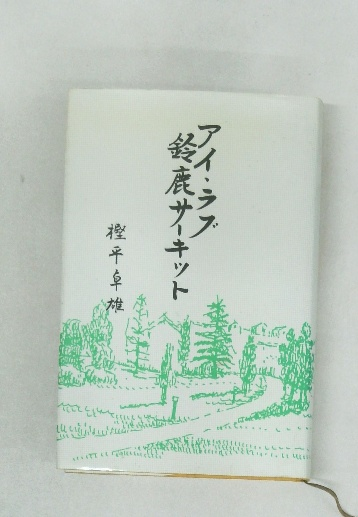 アイ・ラブ
鈴鹿サーキット
樫平卓雄